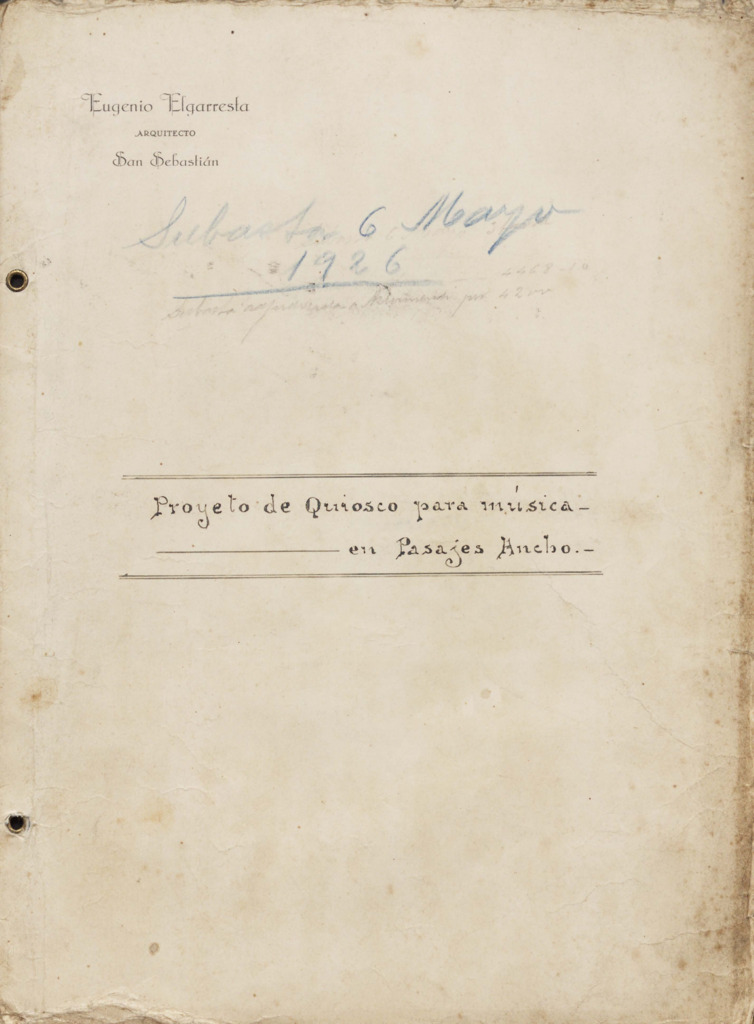 Eugenio Elgarresta
ARQUITECTO
San Sebastián
Subasta 6 Mayo
1926
Subasta a por
Proyeto de Quiosco para música-
en Pasajes Ancho.-